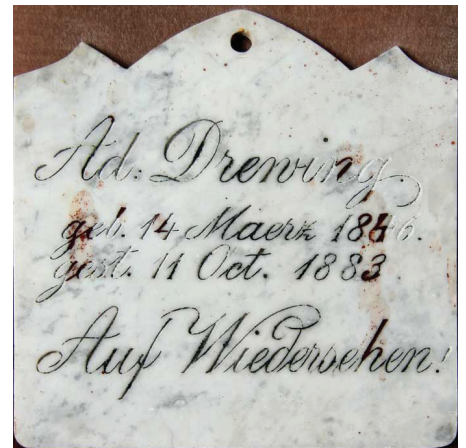 Ad: Drewing
geb. 14 Maerz 1846.
gest. 11 Oct. 1883
Auf Wiedersehen!